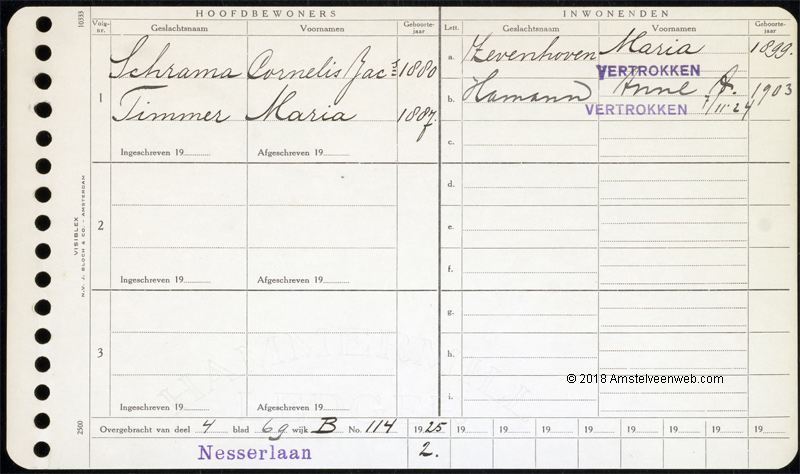 10533
HOOFDBEWONERS
INWONENDEN
Volg-nr.
Geslachtsnaam
Voornamen
Geboorte-jaar
Lett.
Geslachtsnaam
Voornamen
Geboorte-jaar
1
Schrama Cornelis Jacs 1880
Timmer Maria 1887
Ingeschreven 19
Afgeschreven 19
a. Zevenhoven Maria 1899.
VERTROKKEN
b. Hamann Anne A. 1903
VERTROKKEN 1/11-24
c.
2
Ingeschreven 19
Afgeschreven 19
d.
e.
f.
3
Ingeschreven 19
Afgeschreven 19
g.
h.
i.
VISIBLEX
N.V. J. BLOCH & CO. - AMSTERDAM
2500
© 2018 Amstelveenweb.com
Overgebracht van deel 4 blad 69 wijk B No. 114
1925 19 19 19 19 19 19 19 19
Nesserlaan
2.